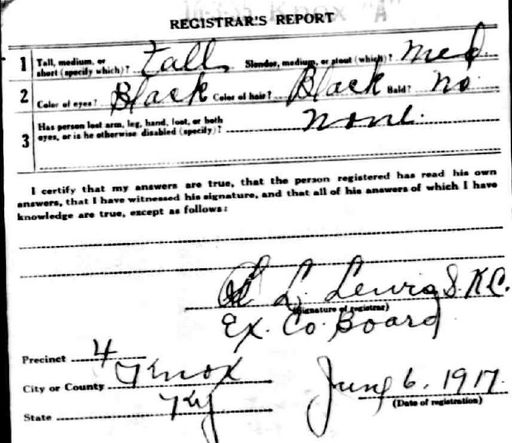 REGISTRAR'S REPORT
1 Tall, medium, or short (specify which)? Tall Slender, medium, or stout (which)? Med.
2 Color of eyes? Black Color of hair? Black Bald? no
3 Has person lost arm, leg, hand, foot, or both eyes, or is he otherwise disabled (specify)? none.
I certify that my answers are true, that the person registered has read his own
answers, that I have witnessed his signature, and that all of his answers of which I have
knowledge are true, except as follows:
L. Lewis S.K.C.
(Signature of registrar)
Ex. Co. Board
Precinct 4
City or County Knox
State Ky
June 6, 1917.
(Date of registration)